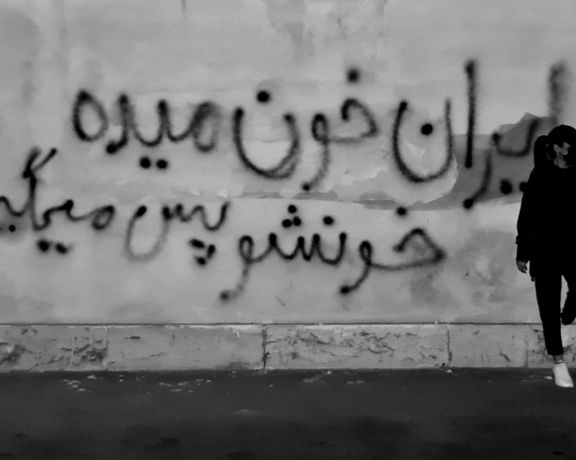 ایران خون میده
خونشو پس میگیره